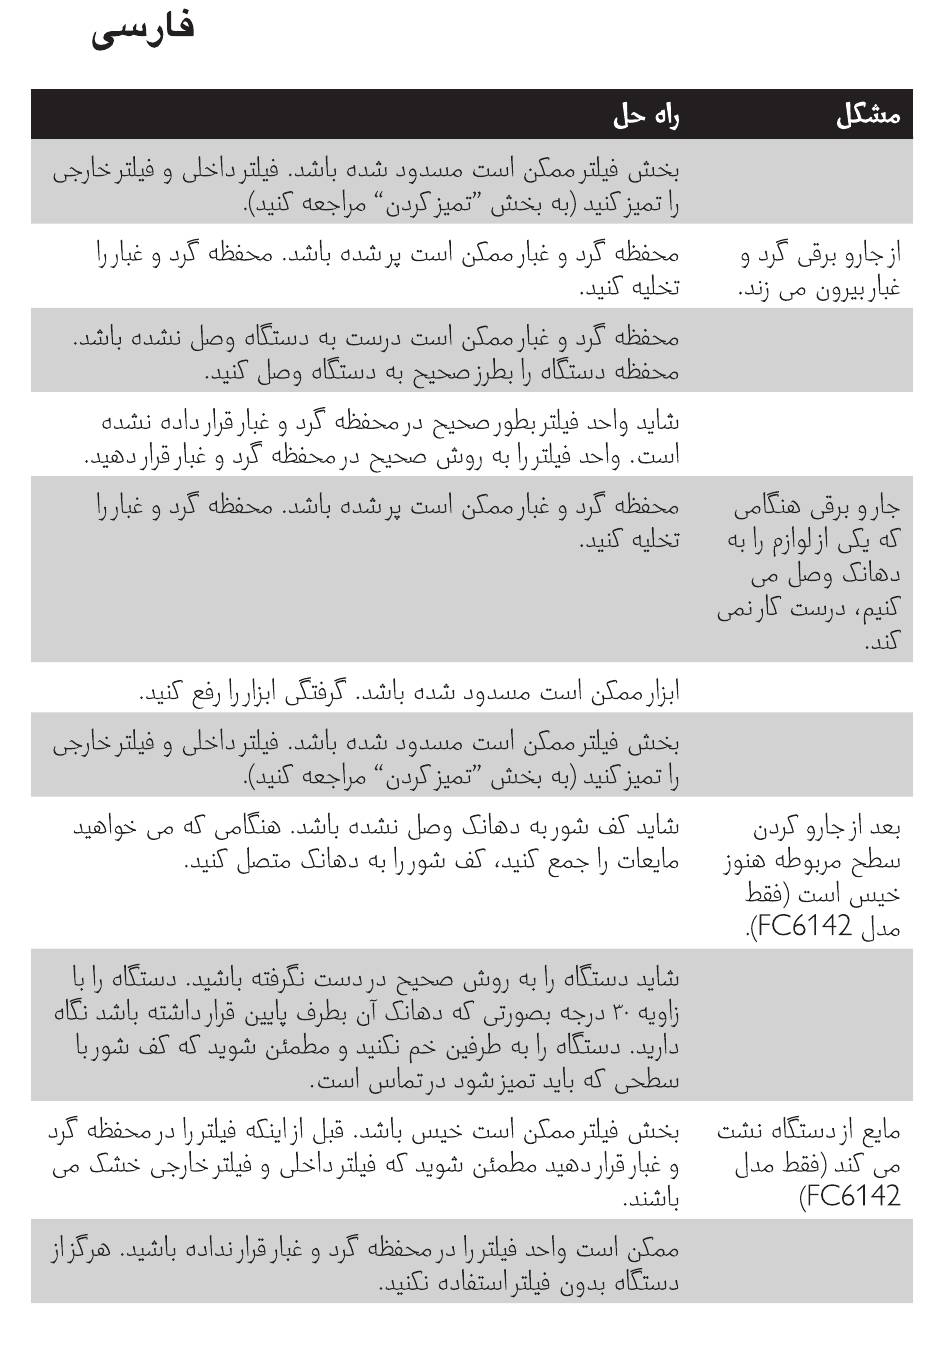 فارسی
مشکل
راه حل
بخش فیلتر ممکن است مسدود شده باشد. فیلتر داخلی و فیلتر خارجی
را تمیز کنید (به بخش ”تمیز کردن“ مراجعه کنید).
از جارو برقی گرد و
غبار بیرون می زند.
محفظه گرد و غبار ممکن است پر شده باشد. محفظه گرد و غبار را
تخلیه کنید.
محفظه گرد و غبار ممکن است درست به دستگاه وصل نشده باشد.
محفظه دستگاه را بطرز صحیح به دستگاه وصل کنید.
شاید واحد فیلتر بطور صحیح در محفظه گرد و غبار قرار داده نشده
است. واحد فیلتر را به روش صحیح در محفظه گرد و غبار قرار دهید.
جار و برقی هنگامی
که یکی از لوازم را به
دهانک وصل می
کنیم، درست کار نمی
کند.
محفظه گرد و غبار ممکن است پر شده باشد. محفظه گرد و غبار را
تخلیه کنید.
ابزار ممکن است مسدود شده باشد. گرفتگی ابزار را رفع کنید.
بخش فیلتر ممکن است مسدود شده باشد. فیلتر داخلی و فیلتر خارجی
را تمیز کنید (به بخش ”تمیز کردن“ مراجعه کنید).
بعد از جارو کردن
سطح مربوطه هنوز
خیس است (فقط
مدل FC6142).
شاید کف شور به دهانک وصل نشده باشد. هنگامی که می خواهید
مایعات را جمع کنید، کف شور را به دهانک متصل کنید.
شاید دستگاه را به روش صحیح در دست نگرفته باشید. دستگاه را با
زاویه ۳۰ درجه بصورتی که دهانک آن بطرف پایین قرار داشته باشد نگاه
دارید. دستگاه را به طرفین خم نکنید و مطمئن شوید که کف شور با
سطحی که باید تمیز شود در تماس است.
مایع از دستگاه نشت
می کند (فقط مدل
FC6142)
بخش فیلتر ممکن است خیس باشد. قبل از اینکه فیلتر را در محفظه گرد
و غبار قرار دهید مطمئن شوید که فیلتر داخلی و فیلتر خارجی خشک می
باشند.
ممکن است واحد فیلتر را در محفظه گرد و غبار قرار نداده باشید. هرگز از
دستگاه بدون فیلتر استفاده نکنید.